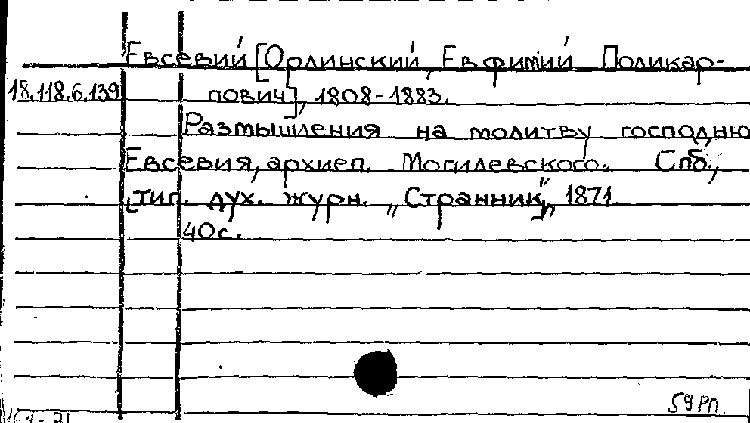 Евсевий [Орлинский, Евфимий Поликар-
18.118.6.139 пович], 1808-1883.
Размышления на молитву господню
Евсевия, архиеп. Могилевского. Спб.,
тип. дух. журн. „Странник", 1871
40с.
59РП